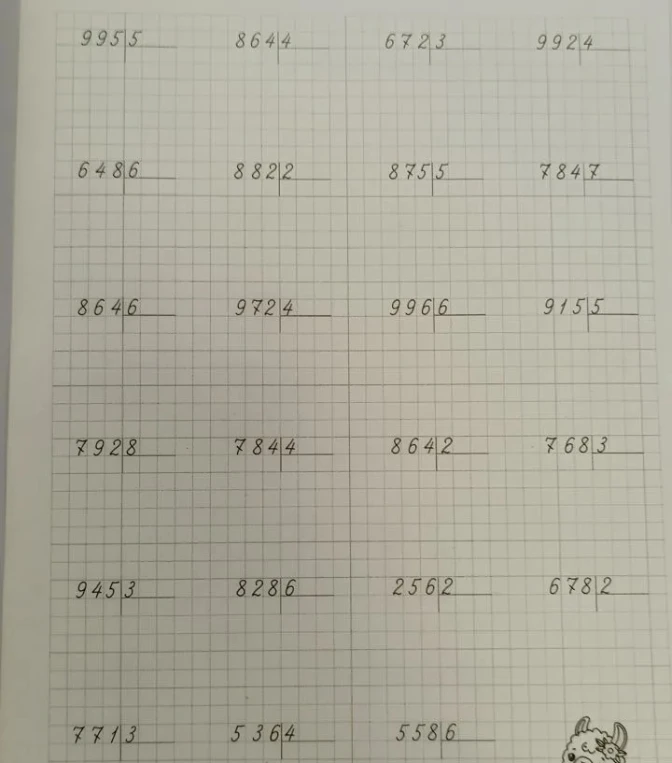 995|5 864|4 672|3 992|4
648|6 882|2 875|5 784|7
864|6 972|4 996|6 915|5
792|8 784|4 864|2 768|3
945|3 828|6 256|2 678|2
771|3 536|4 558|6